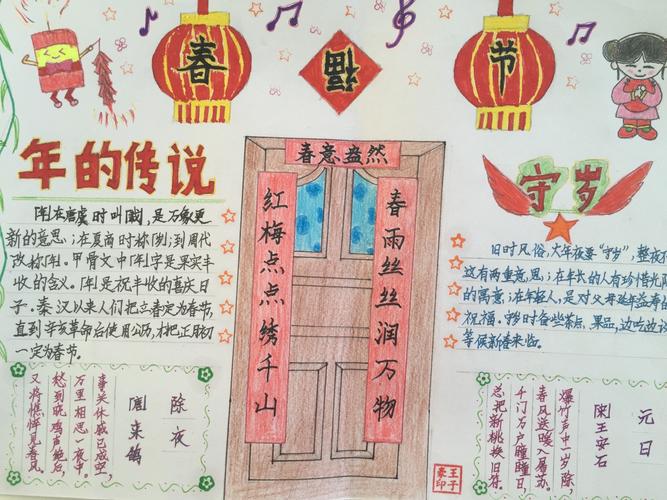 春
福
节
年的传说
[年]在唐虞时叫[载],是万象更
新的意思;在夏商时称[岁];到周代
改称[年]。甲骨文中[年]字是果实丰
收的含义。[年]是祝丰收的喜庆日
子。秦汉以来人们把立春定为春节,
直到辛亥革命后使用公历,才把正月初
一定为春节。
春意盎然
春雨丝丝润万物
红梅点点绣千山
守岁
旧时风俗,大年夜要“守岁”,整夜
这有两重意思:在年长的人有珍惜光
的寓意;在年轻人,是对父母延年益寿的
祝福。守岁时备些茶点、果品,边吃边
等候新春来临。
除夜
[唐]来鹄
事关休戚已成空,
万里相思一夜中。
愁到晓鸡声绝后,
又将憔悴见春风
元日
[宋]王安石
爆竹声中一岁除,
春风送暖入屠苏。
千门万户瞳瞳日,
总把新桃换旧符。
王子
豪印